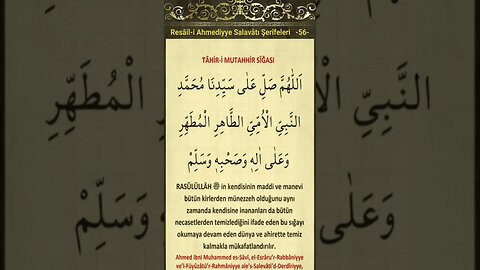 Resâil-i Ahmediyye Salavâtı Şerifeleri -56-
TÂHİR-İ MUTAHHİR SİĞASI
اَللّٰهُمَّ صَلِّ عَلٰى سَيِّدِنَا مُحَمَّدٍ
النَّبِيِّ الْاُمِّيِّ الطَّاهِرِ الْمُطَهِّرِ
وَعَلٰى اٰلِهٖ وَصَحْبِهٖ وَسَلِّمْ
RASÛLÜLLÂH ﷺ in kendisinin maddi ve manevi
bütün kirlerden münezzeh olduğunu aynı
zamanda kendisine inananları da bütün
necasetlerden temizlediğini ifade eden bu sığayı
okumaya devam eden dünya ve ahirette temiz
kalmakla mükafatlandırılır.
Ahmed ibni Muhammed es-Sâvî, el-Esrâru'r-Rabbâniyye
ve'l-Füyûzâtü'r-Rahmâniyye ale's-Salevâti'd-Derdîriyye,